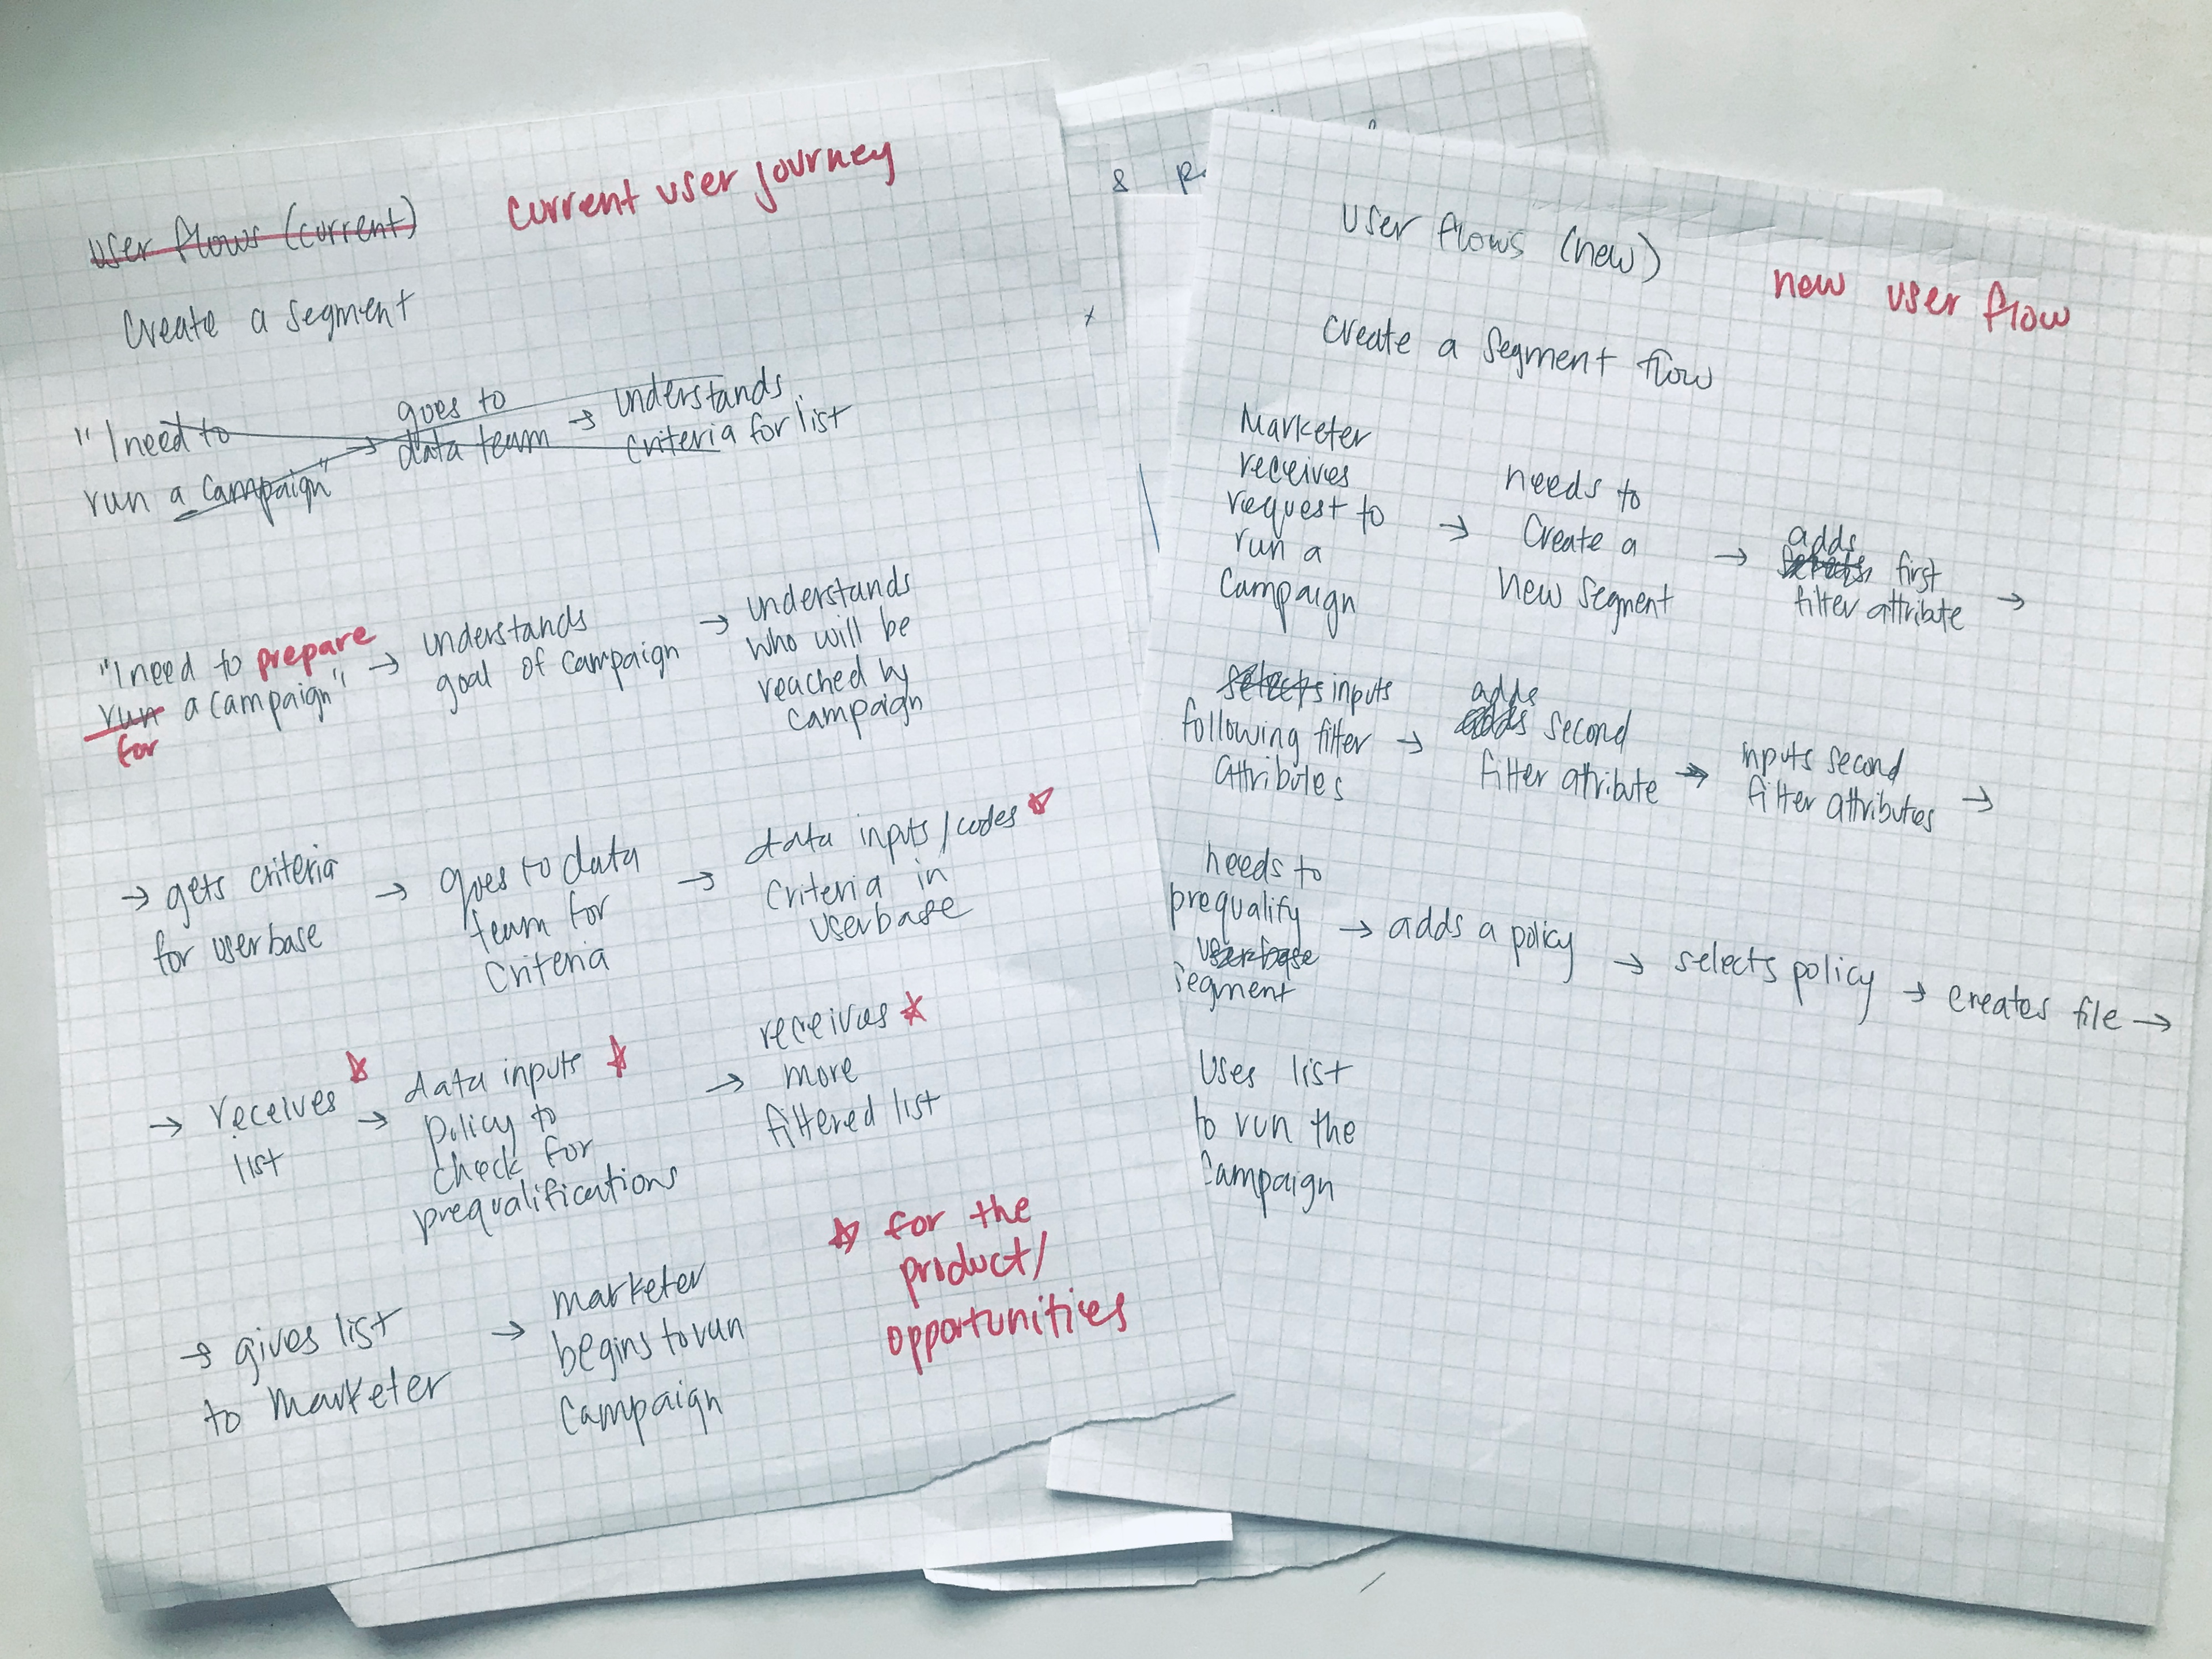 User flows (current)
current user journey
Create a segment
"I need to
run a campaign"
→ goes to
data team
→ understands
criteria for list
"I need to prepare
run a campaign"
for
→ understands
goal of campaign
→ understands
who will be
reached by
campaign
→ gets criteria
for userbase
→ goes to data
team for
criteria
→ data inputs/codes ☆
criteria in
userbase
→ receives ☆
list
→ data inputs ☆
policy to
check for
prequalifications
→ receives ☆
more
filtered list
→ gives list
to marketer
→ marketer
begins to run
campaign
☆ for the
product/
opportunities
&
User flows (new)
new user flow
Create a segment flow
Marketer
receives
request to
run a
campaign
→ needs to
create a
new segment
→ adds
selects first
filter attribute →
selects inputs
following filter
attributes
→ adds
adds second
filter attribute
→ inputs second
filter attributes →
needs to
prequalify
userbase
segment
→ adds a policy
→ selects policy
→ creates file →
Uses list
to run the
campaign